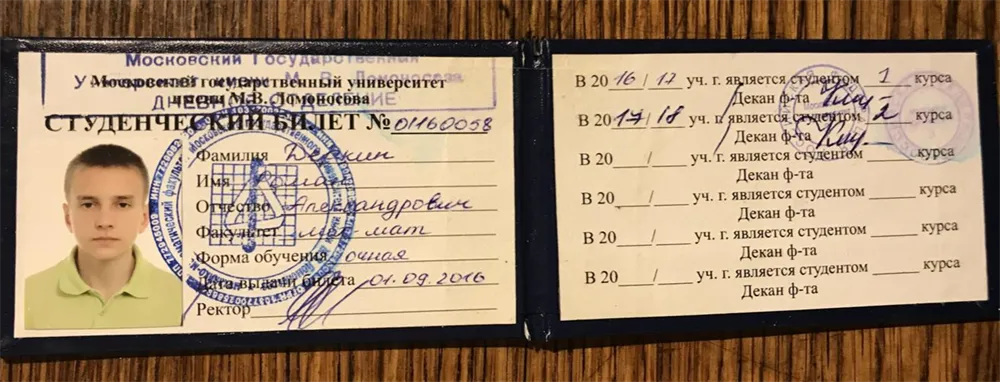 Московский Государственный
Университет имени М. В. Ломоносова
ДНЕВНОЕ ОТДЕЛЕНИЕ
Московский государственный университет
имени М.В. Ломоносова
СТУДЕНЧЕСКИЙ БИЛЕТ № 01160058
Фамилия Деркин
Имя Роман
Отчество Александрович
Факультет мех-мат
Форма обучения очная
Дата выдачи билета 01.09.2016
Ректор
В 20 16 / 17 уч. г. является студентом 1 курса
Декан ф-та
В 20 17 / 18 уч. г. является студентом 2 курса
Декан ф-та
В 20___/___ уч. г. является студентом ______ курса
Декан ф-та
В 20___/___ уч. г. является студентом ______ курса
Декан ф-та
В 20___/___ уч. г. является студентом ______ курса
Декан ф-та
В 20___/___ уч. г. является студентом ______ курса
Декан ф-та